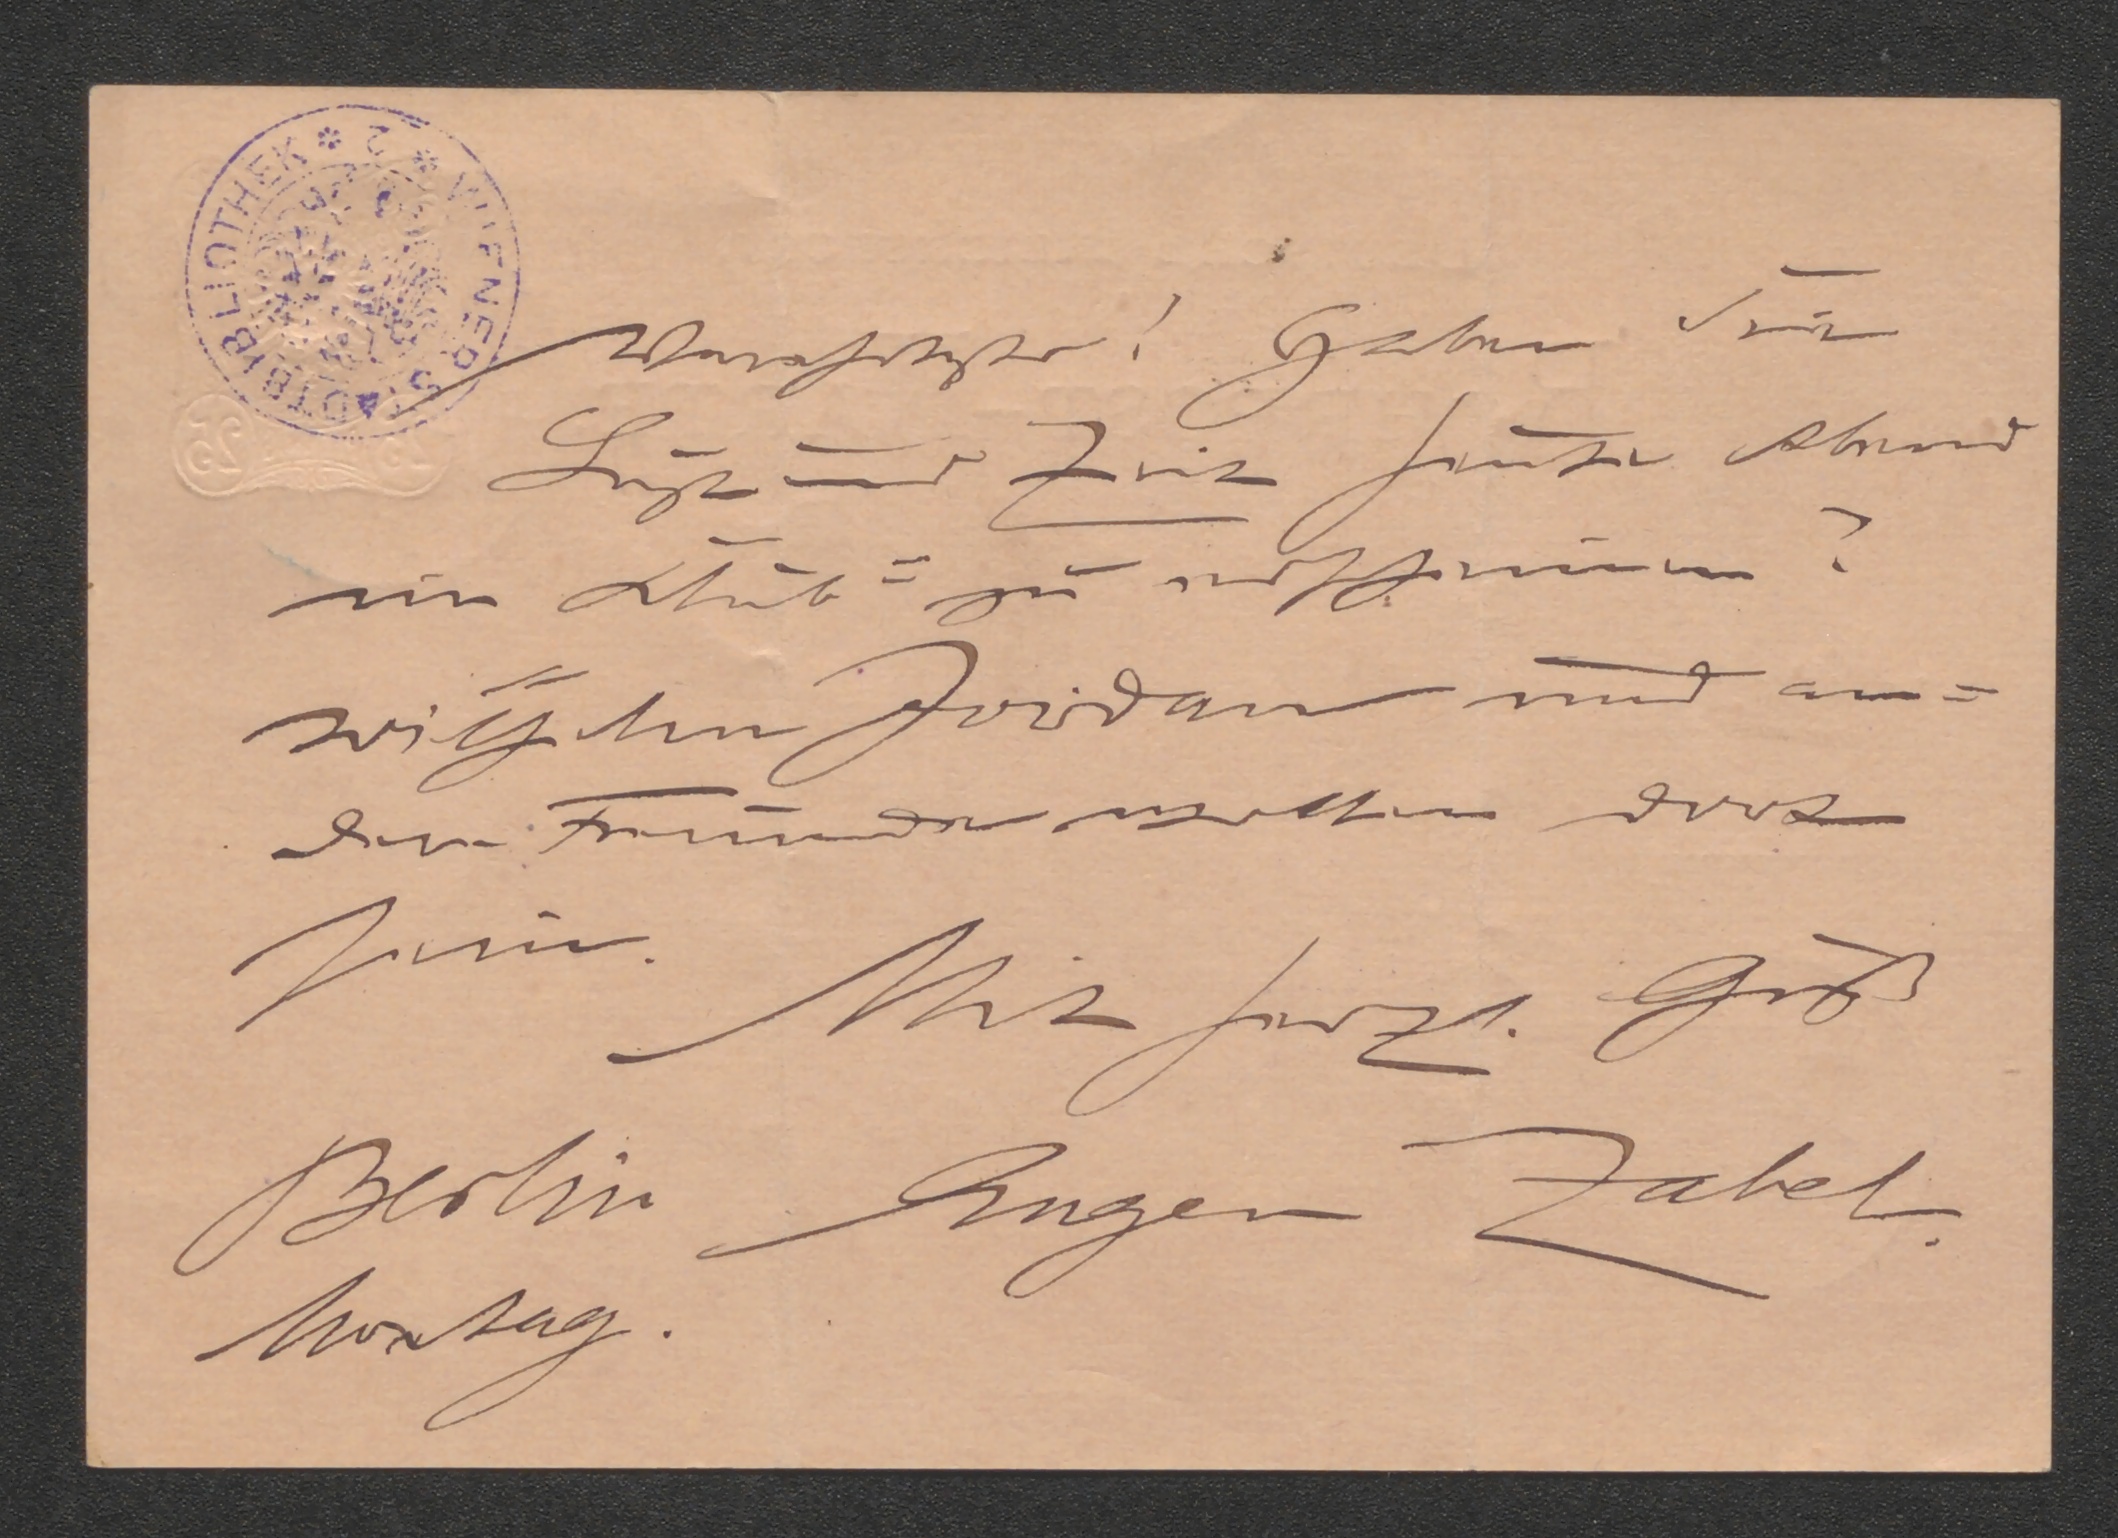 WIENER STADTBIBLIOTHEK
Verehrtester! Haben Sie
Lust und Zeit heute Abend
im Klub zu erscheinen?
Wilhelm Jordan und an=
dere Freunde wollen dort
sein.
Mit herzl. Gruß
Berlin Eugen Zabel.
Montag.
25 25